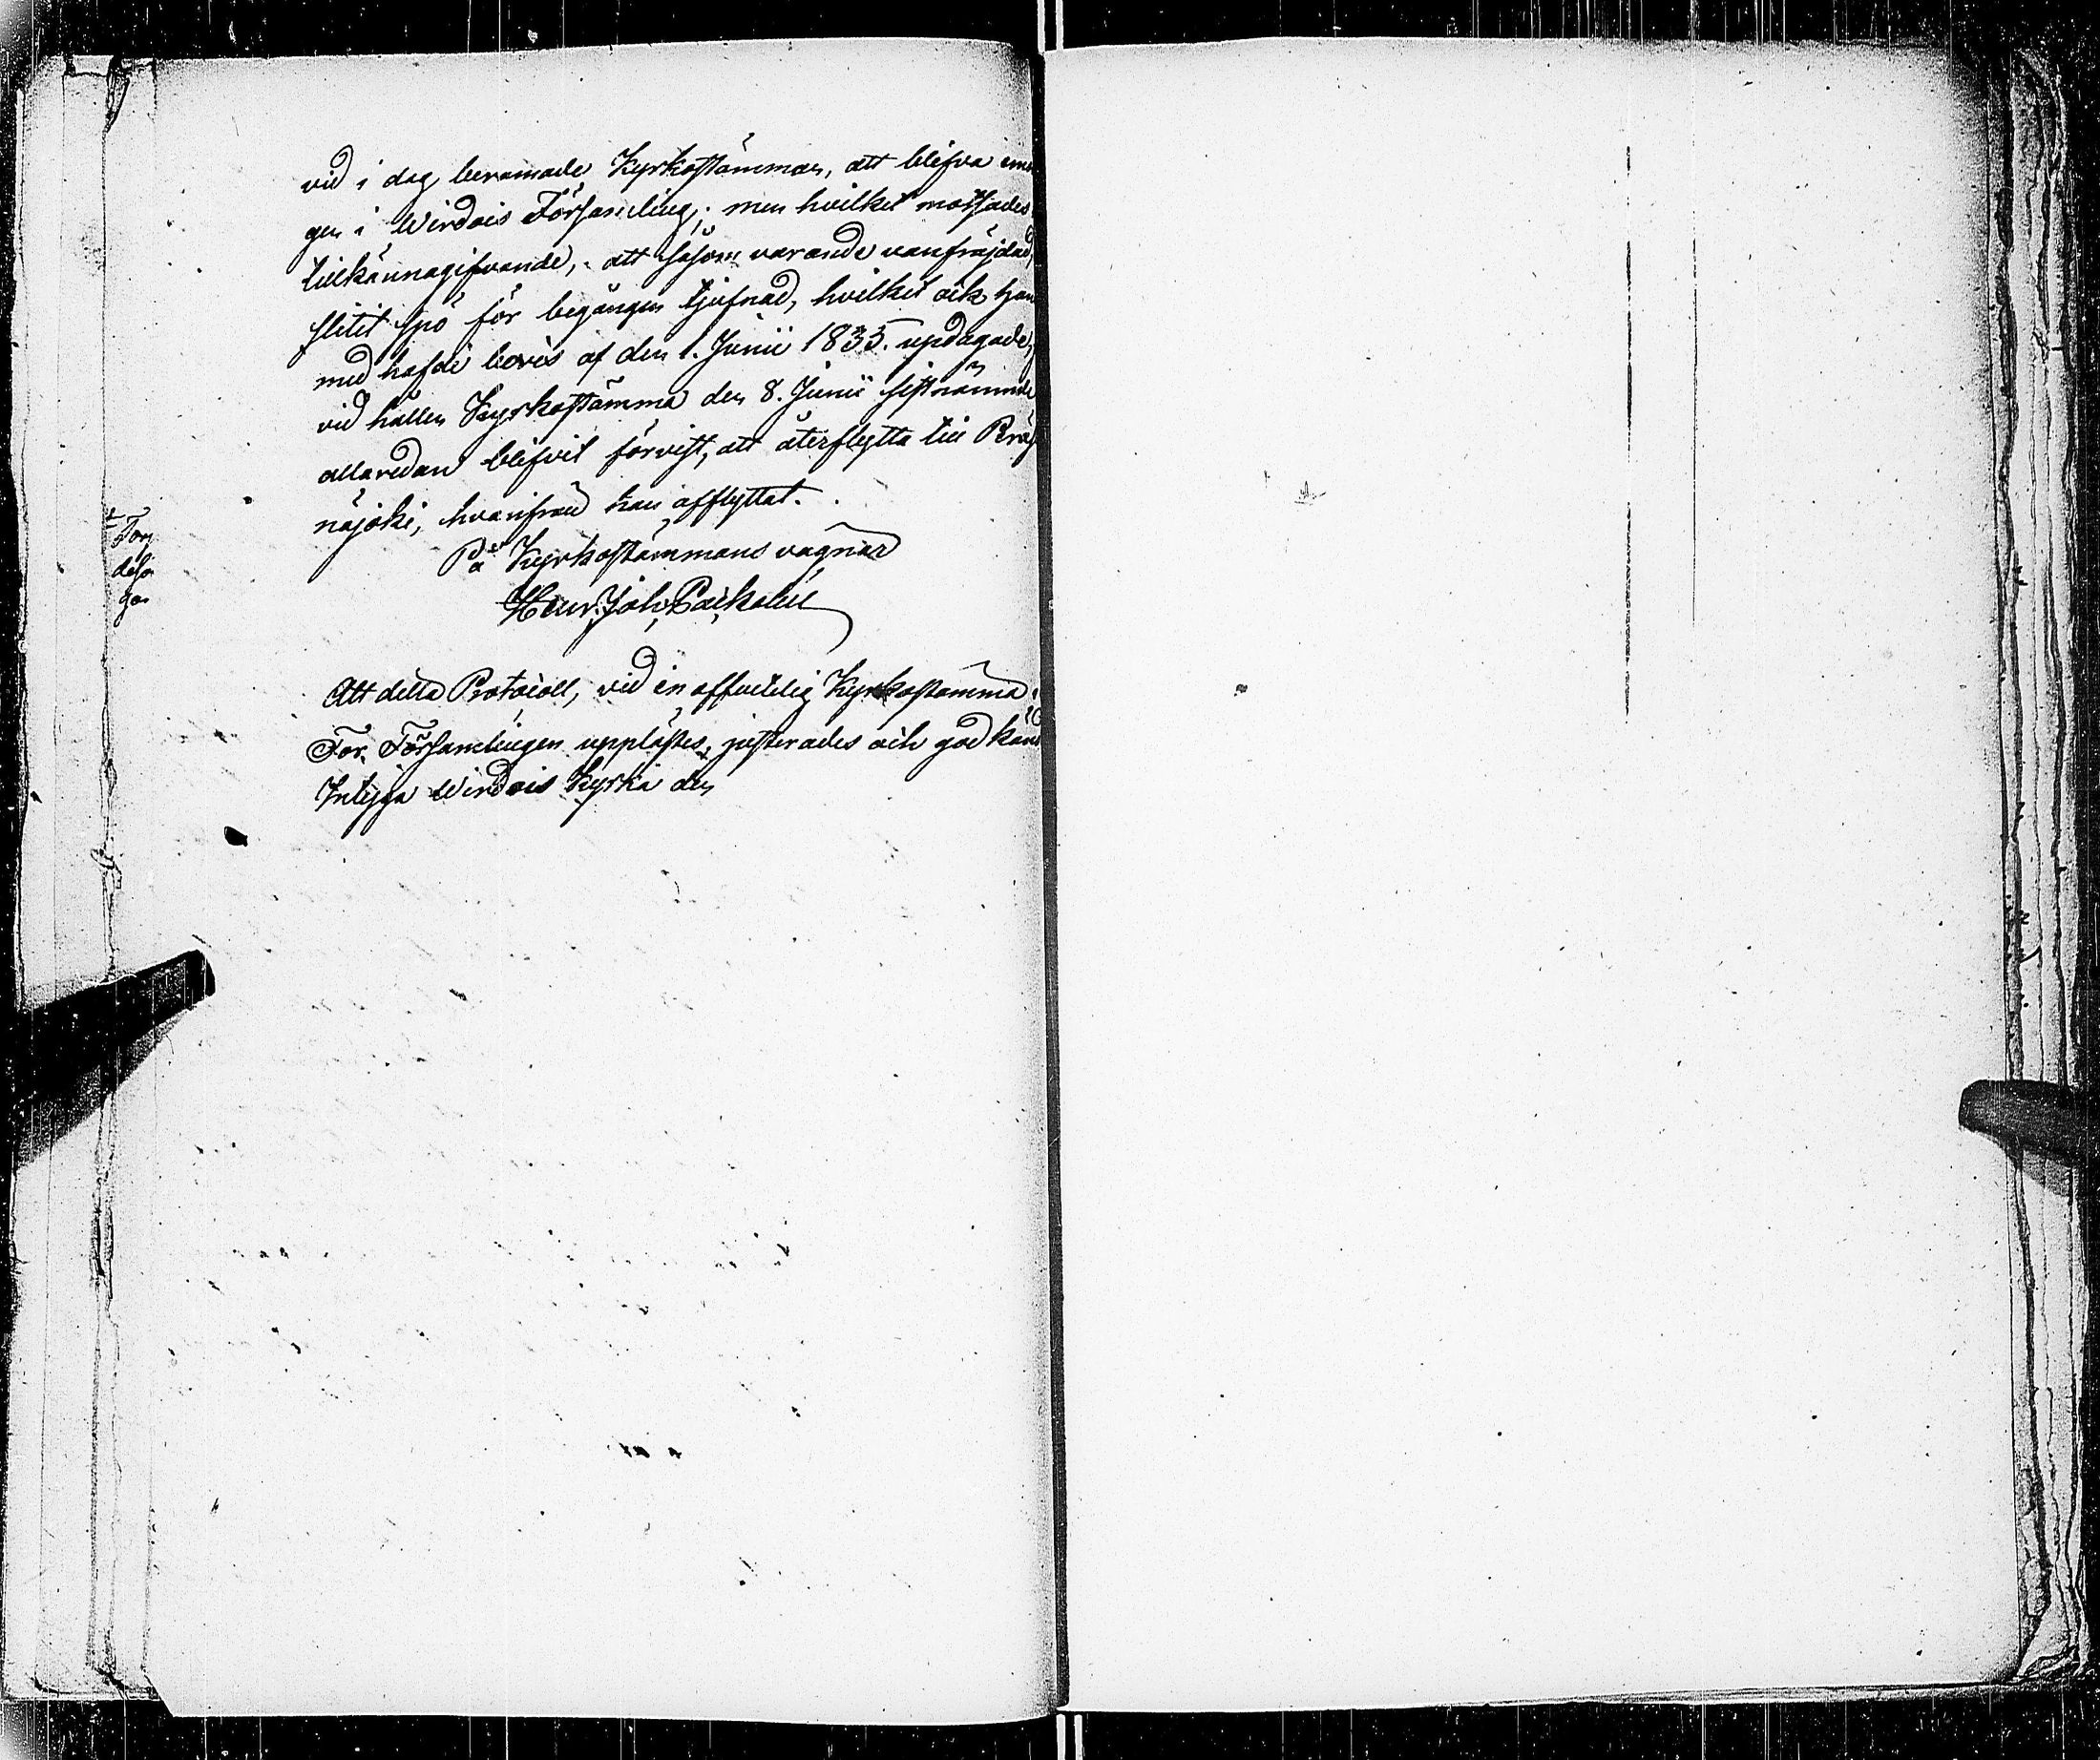 vid i dag beramade Kyrkostämman, att blifva
gen i Wirdois Församling; men hvilket motsades
tillkännagifvande, att såsom varande vanfräjdad,
slitit spö för begången tjufnad, hvilket ock han
med hafde bevis af den 1. Junii 1835. updagade,
vid hållen Kyrkostämma den 8. Junii sistnämnde
allaredan blifvit förvist, att återflytta till
näjoki, hvarifrån han afflyttat.
På Kyrkostämmans vägnar
Henr. Joh.
Att detta Protocoll, vid en offentelig Kyrkostämma
För Församlingen upplästes, justerades och godkänd
Intyga Wirdois Kyrka den